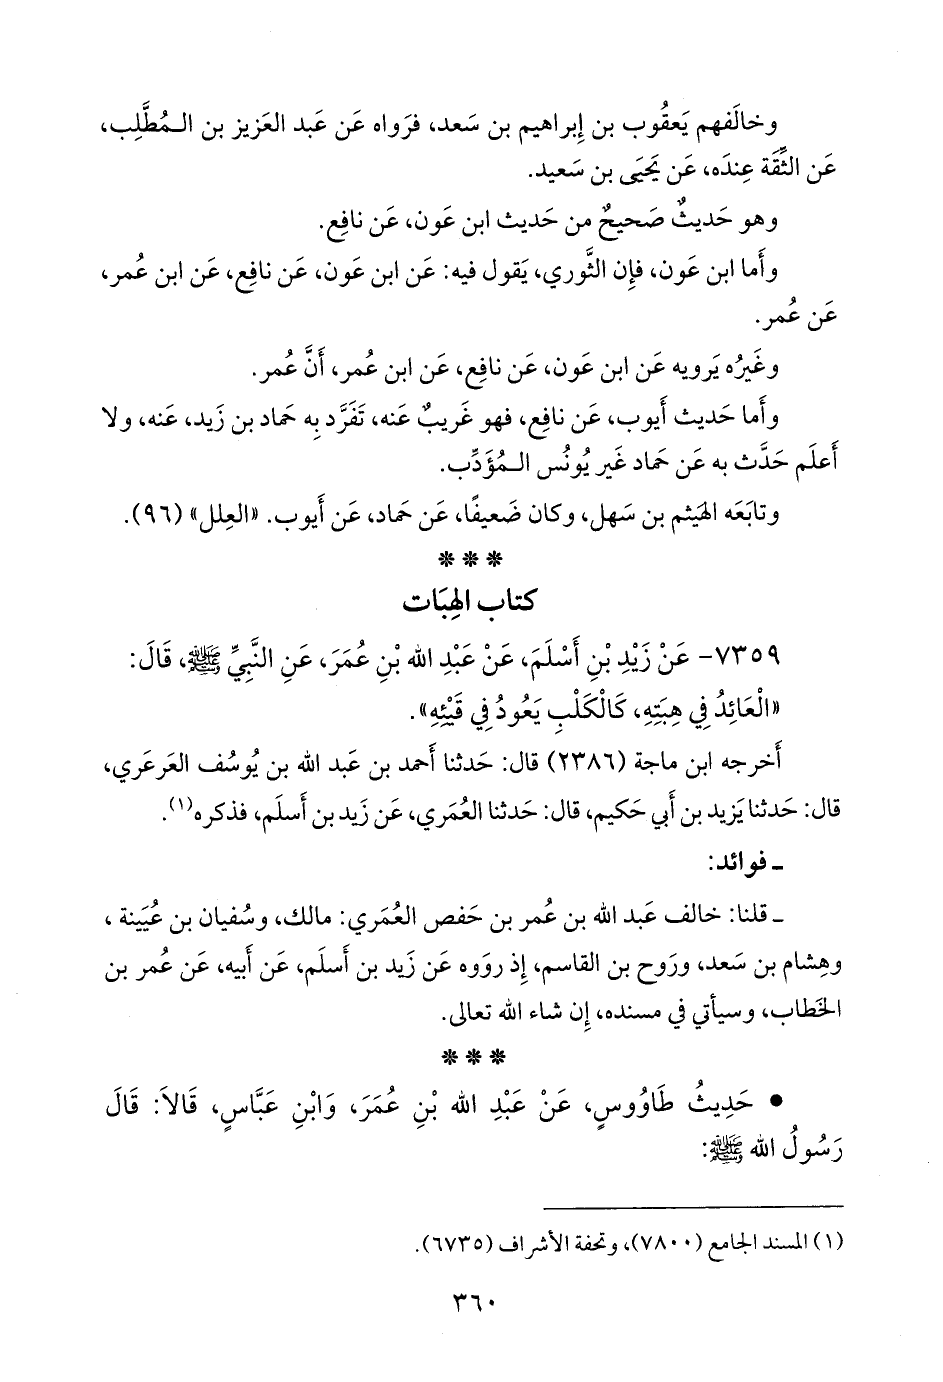 وخالَفهم يَعقُوب بن إِبراهيم بن سَعد، فرَواه عَن عَبد العَزيز بن الـمُطَّلِب،
عَن الثِّقَة عِندَه، عَن يَحيَى بن سَعيد.
وهو حَديثٌ صَحيحٌ من حَديث ابن عَون، عَن نافِع.
وأَما ابن عَون، فإِن الثَّوري، يَقول فيه: عَن ابن عَون، عَن نافِع، عَن ابن عُمر،
عَن عُمر.
وغَيرُه يَرويه عَن ابن عَون، عَن نافِع، عَن ابن عُمر، أَنَّ عُمر.
وأَما حَديث أَيوب، عَن نافِع، فهو غَريبٌ عَنه، تَفَرَّد بِه حَماد بن زَيد، عَنه، ولا
أَعلَم حَدَّث به عَن حَماد غَير يُونُس الـمُؤَدِّب.
وتابَعَه الهَيثم بن سَهل، وكان ضَعيفًا، عَن حَماد، عَن أَيوب. «العِلل» (٩٦).
* * *
كتاب الهِبَات
٧٣٥٩- عَنْ زَيْدِ بْنِ أَسْلَمَ، عَنْ عَبْدِ الله بْنِ عُمَرَ، عَنِ النَّبِيِّ ﷺ، قَالَ:
«الْعَائِدُ فِي هِبَتِهِ، كَالْكَلْبِ يَعُودُ فِي قَيْئِهِ».
أَخرجه ابن ماجة (٢٣٨٦) قال: حَدثنا أَحمد بن عَبد الله بن يُوسُف العَرعَري،
قال: حَدثنا يَزيد بن أَبي حَكيم، قال: حَدثنا العُمَري، عَن زَيد بن أَسلَم، فذكره(١).
ـ فوائد:
ـ قلنا: خالف عَبد الله بن عُمر بن حَفص العُمَري: مالك، وسُفيان بن عُيَينة ،
وهِشام بن سَعد، ورَوح بن القاسم، إِذ رووه عَن زَيد بن أَسلَم، عَن أَبيه، عَن عُمر بن
الخَطاب، وسيأتي في مسنده، إِن شاء الله تعالى.
* * *
• حَدِيثُ طَاوُوسٍ، عَنْ عَبْدِ الله بْنِ عُمَرَ، وَابْنِ عَبَّاسٍ، قَالَا: قَالَ
رَسُولُ الله ﷺ:
(١) المسند الجامع (٧٨٠٠)، وتحفة الأشراف (٦٧٣٥).
٣٦٠